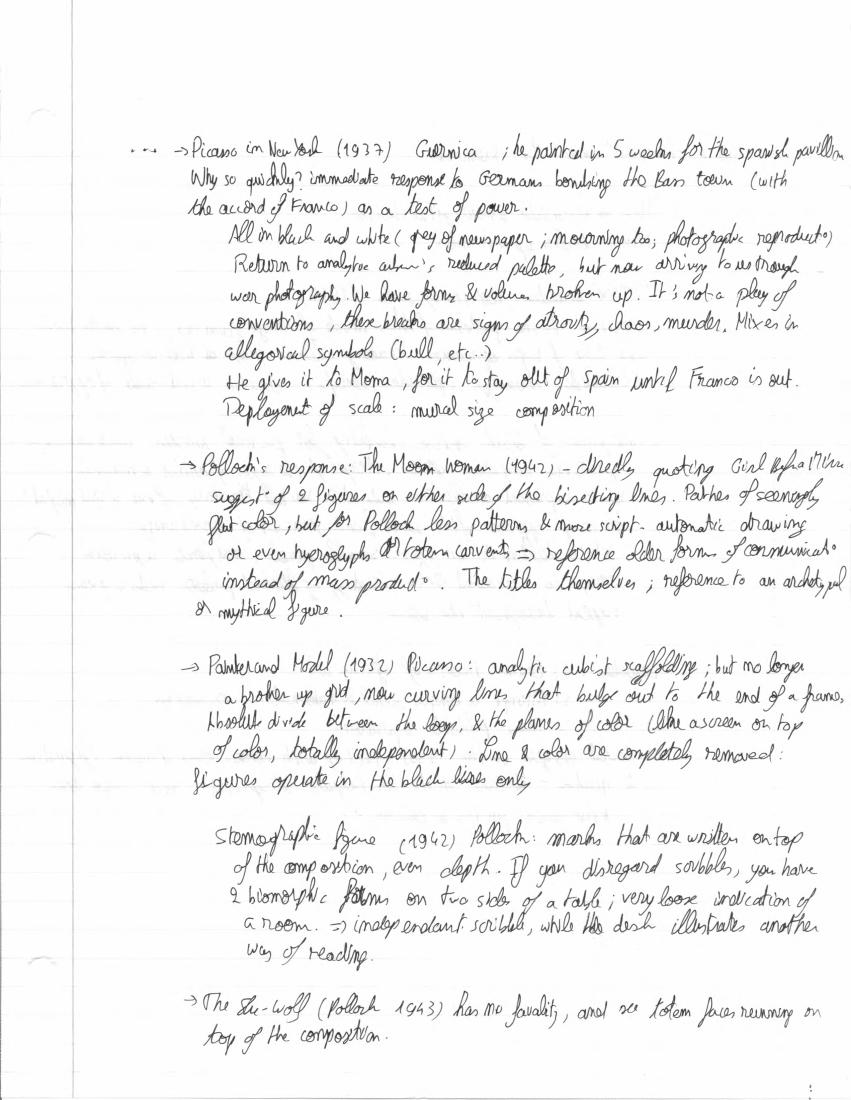 ... → Picasso in New York (1937) Guernica ; he painted in 5 weeks for the spanish pavillion
Why so quickly? immediate response to Germans bombing the Bass town (with
the accord of Franco) as a test of power.
All in black and white (grey of newspaper ; mourning too; photographic reproduct°)
Return to analytic cubism's reduced palette, but now arriving to us through
war photography. We have forms & volumes broken up. It's not a play of
conventions, these breaks are signs of atrocity, chaos, murder. Mixes in
allegorical symbols (bull, etc..)
He gives it to Moma, for it to stay out of Spain until Franco is out.
Deployement of scale : mural size composition
→ Pollock's response: The Moon Woman (1942) - directly quoting Girl Before a Mirror
suggest° of 2 figures on either side of the bisecting lines. Patches of seemingly
flat color, but for Pollock less patterns & more script - automatic drawing
or even hyeroglyphs or totem carvents ⇒ reference older forms of communicat°
instead of mass product°. The titles themselves ; reference to an archetypal
or mythical figure.
→ Painter and Model (1932) Picasso: analytic cubist scaffolding ; but no longer
a broken up grid, now curving lines that bulge out to the end of a frame,
Absolute divide between the loops, & the planes of color (like a screen on top
of color, totally independent). Line & color are completely removed:
figures operate in the black lines only
Stemographic figure (1942) Pollock: marks that are written on top
of the composition, even depth. If you disregard scribbles, you have
2 biomorphic forms on two sides of a table ; very loose indication of
a room. ⇒ independant scribble, while the desk illustrates another
way of reading.
→ The She-wolf (Pollock 1943) has no and see totem faces running on
top of the composition.